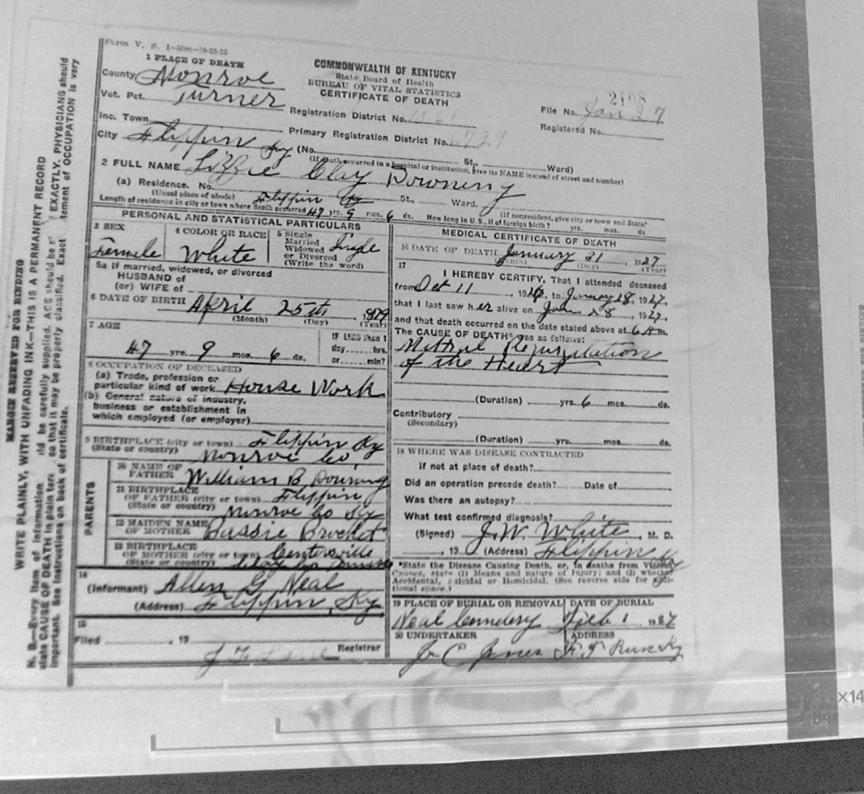 Form V. S. 1-50m-10-23-25
1 PLACE OF DEATH
County Monroe
Vot. Pct. Turner
Inc. Town
City Flippin Ky (No. St., Ward)
(If death occurred in a hospital or institution, give its NAME instead of street and number)
COMMONWEALTH OF KENTUCKY
State Board of Health
BUREAU OF VITAL STATISTICS
CERTIFICATE OF DEATH
Registration District No.
Primary Registration District No.
File No. Jan 27
Registered No.
2 FULL NAME Lizzie Clay Downing
(a) Residence. No. Flippin Ky St., Ward.
(Usual place of abode) (If nonresident, give city or town and State)
Length of residence in city or town where death occurred 47 yrs. 9 mos. 6 ds. How long in U.S., if of foreign birth? yrs. mos. ds.
PERSONAL AND STATISTICAL PARTICULARS
3 SEX Female
4 COLOR OR RACE White
5 Single Married Widowed or Divorced (Write the word) Single
5a If married, widowed, or divorced
HUSBAND of
(or) WIFE of
6 DATE OF BIRTH April 25th, 1879
(Month) (Day) (Year)
7 AGE
47 yrs. 9 mos. 6 ds.
IF LESS than 1 day hrs. or min?
8 OCCUPATION OF DECEASED
(a) Trade, profession or
particular kind of work House Work
(b) General nature of industry,
business or establishment in
which employed (or employer)
9 BIRTHPLACE (city or town) Flippin Ky
(State or country) Monroe Co
PARENTS
10 NAME OF FATHER William B Downing
11 BIRTHPLACE OF FATHER (city or town) Flippin
(State or country) Monroe Co Ky
12 MAIDEN NAME OF MOTHER
13 BIRTHPLACE OF MOTHER (city or town) Centersville
(State or country)
14
(Informant) Allen G Neal
(Address) Flippin, Ky
15
Filed , 19
Registrar
MEDICAL CERTIFICATE OF DEATH
16 DATE OF DEATH January 31, 1927
(Month) (Day) (Year)
17
I HEREBY CERTIFY, That I attended deceased
from Oct 11, 1926, to January 28, 1927,
that I last saw her alive on Jan 28, 1927,
and that death occurred on the date stated above at 6 A m.
The CAUSE OF DEATH* was as follows:
Mitral Regurgitation
of the Heart
(Duration) yrs. 6 mos. ds.
Contributory
(Secondary)
(Duration) yrs. mos. ds.
18 WHERE WAS DISEASE CONTRACTED
if not at place of death?
Did an operation precede death? Date of
Was there an autopsy?
What test confirmed diagnosis?
(Signed) J. W. White, M. D.
, 19 (Address) Flippin Ky
*State the Disease Causing Death, or, in deaths from Violent
Causes, state (1) Means and nature of Injury; and (2) whether
Accidental, Suicidal or Homicidal. (See reverse side for additional space.)
19 PLACE OF BURIAL OR REMOVAL
Neal Cemetery
DATE OF BURIAL
Feb 1 1927
20 UNDERTAKER
J C Jones
ADDRESS
F. T Run Ky
MARGIN RESERVED FOR BINDING
WRITE PLAINLY, WITH UNFADING INK—THIS IS A PERMANENT RECORD
N. B.—Every item of information should be carefully supplied. AGE should be EXACTLY. PHYSICIANS should
state CAUSE OF DEATH in plain terms so that it may be properly classified. Exact statement of OCCUPATION is very
important. See instructions on back of certificate.
x14